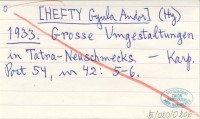 [HEFTY Gyula Andor] (Hg)
1933. Grosse Umgestaltungen
in Tatra-Neuschmecks. — Karp.
Post 54, no 42: 5-6.